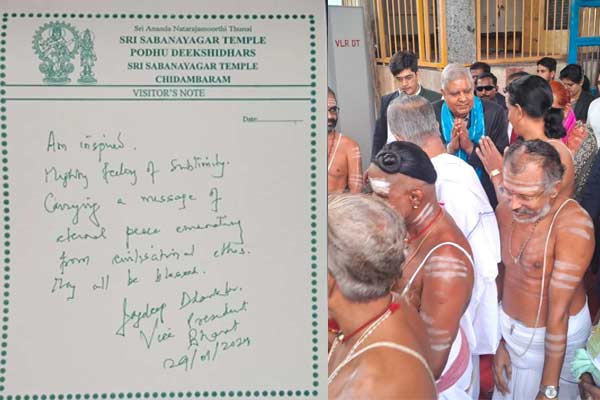 Sri Ananda Natarajamoorthi Thunai
SRI SABANAYAGAR TEMPLE
PODHU DEEKSHIDHARS
SRI SABANAYAGAR TEMPLE
CHIDAMBARAM
VISITOR'S NOTE
Date:
Am inspired.
Mighty feeling of sublimity.
Carrying a message of
eternal peace emanating
from civilisational ethos.
May all be blessed.
Jagdeep Dhankhar
Vice President
Bharat
29/01/2024
VLR DT